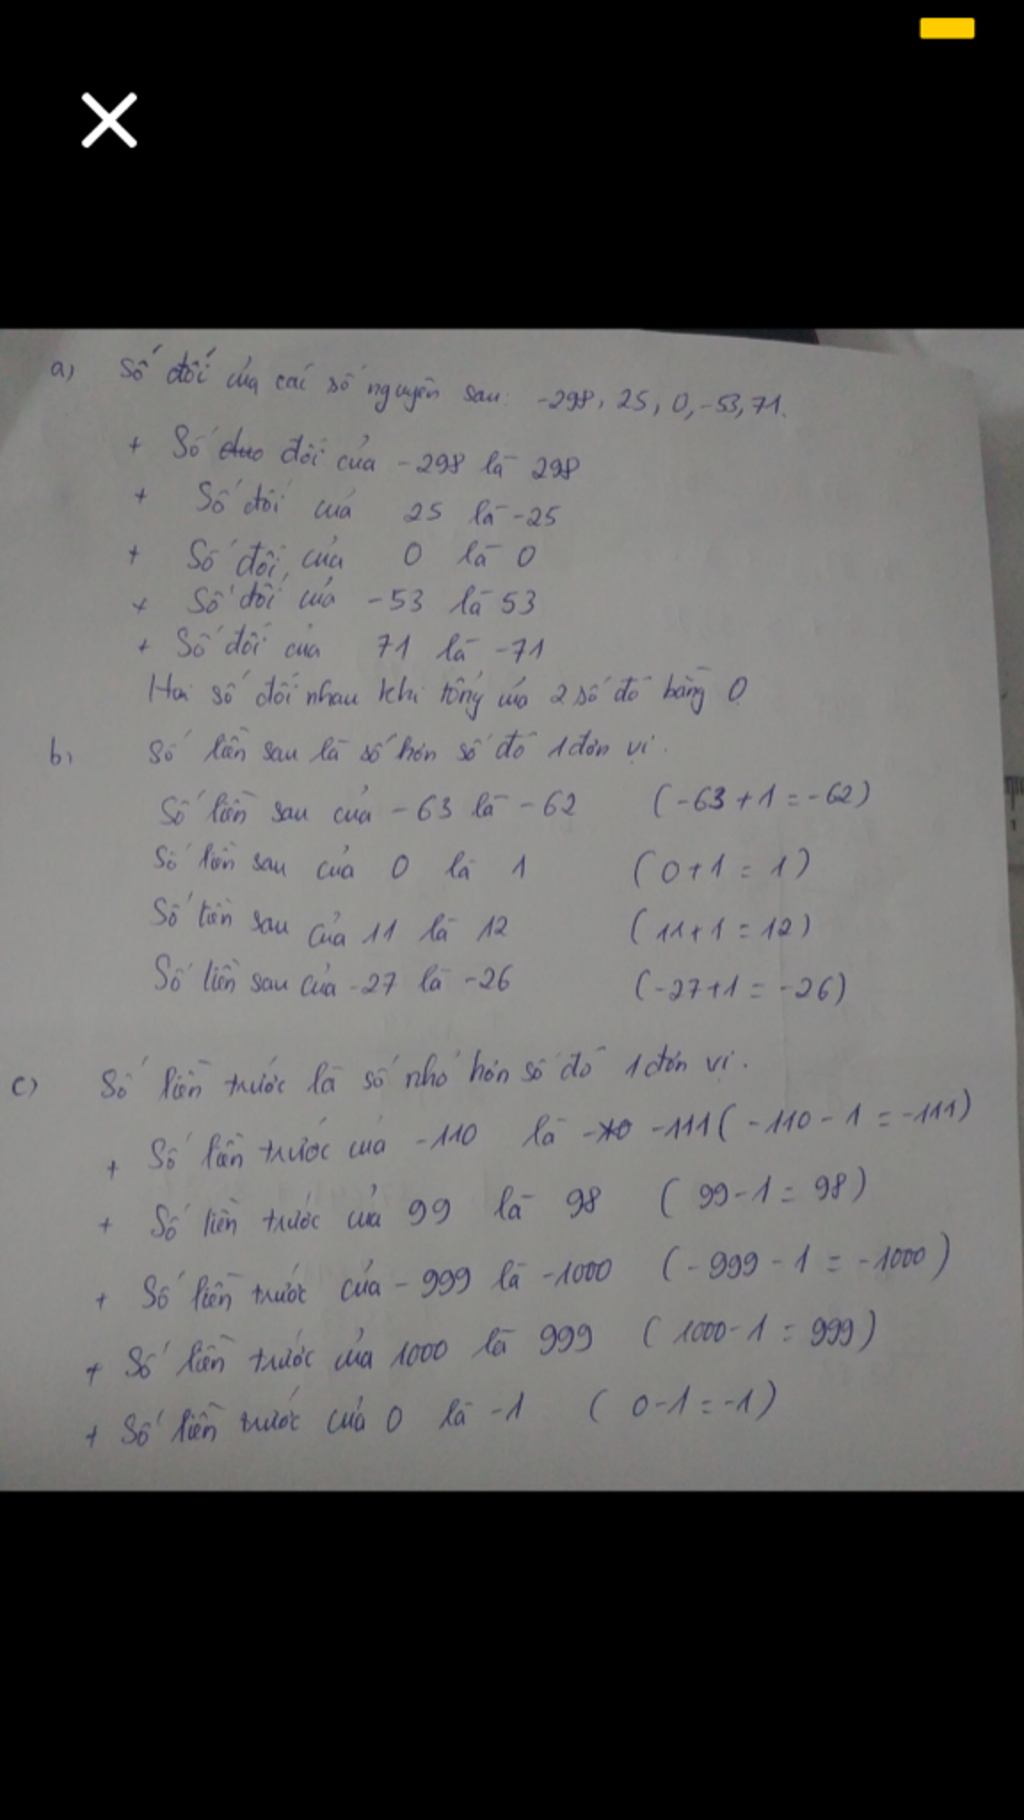 a) Số đối của các số nguyên sau: -298, 25, 0, -53, 71.
+ Số đối của -298 là 298
+ Số đối của 25 là -25
+ Số đối của 0 là 0
+ Số đối của -53 là 53
+ Số đối của 71 là -71
Hai số đối nhau khi tổng của 2 số đó bằng 0
b, Số liền sau là số hơn số đó 1 đơn vị.
Số liền sau của -63 là -62 (-63+1=-62)
Số liền sau của 0 là 1 (0+1=1)
Số liền sau của 11 là 12 (11+1=12)
Số liền sau của -27 là -26 (-27+1=-26)
c) Số liền trước là số nhỏ hơn số đó 1 đơn vị.
+ Số liền trước của -110 là -111 (-110-1=-111)
+ Số liền trước của 99 là 98 (99-1=98)
+ Số liền trước của -999 là -1000 (-999-1=-1000)
+ Số liền trước của 1000 là 999 (1000-1=999)
+ Số liền trước của 0 là -1 (0-1=-1)